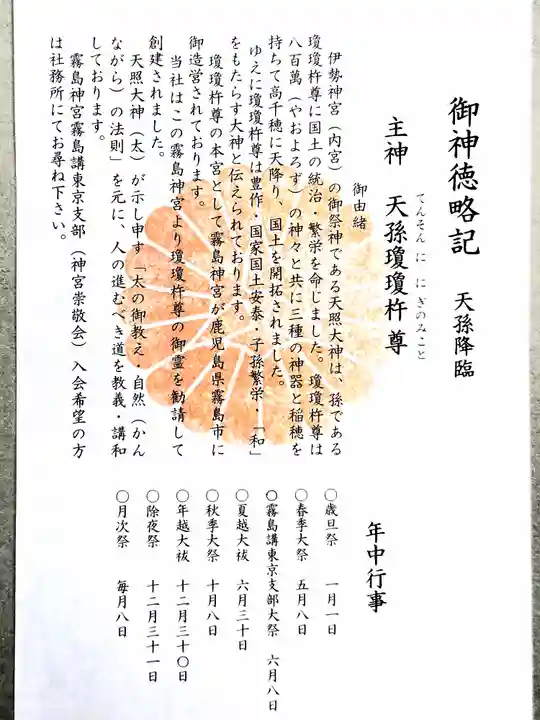 御神徳略記　天孫降臨
てんそん に に ぎのみこと
主神　天孫瓊瓊杵尊
御由緒
伊勢神宮（内宮）の御祭神である天照大神は、孫である
瓊瓊杵尊に国土の統治・繁栄を命じました。瓊瓊杵尊は
八百萬（やおよろず）の神々と共に三種の神器と稲穂を
持ちて高千穂に天降り、国土を開拓されました。
ゆえに瓊瓊杵尊は豊作・国家国土安泰・子孫繁栄・「和」
をもたらす大神と伝えられております。
瓊瓊杵尊の本宮として霧島神宮が鹿児島県霧島市に
御造営されております。
当社はこの霧島神宮より瓊瓊杵尊の御霊を勧請して
創建されました。
天照大神（太）が示し申す「太の御教え・自然（かん
ながら）の法則」を元に、人の進むべき道を教義・講和
しております。
霧島神宮霧島講東京支部（神宮崇敬会）入会希望の方
は社務所にてお尋ね下さい。
年中行事
○歳旦祭　一月一日
○春季大祭　五月八日
○霧島講東京支部大祭　六月八日
○夏越大祓　六月三十日
○秋季大祭　十月八日
○年越大祓　十二月三十〇日
○除夜祭　十二月三十一日
○月次祭　毎月八日